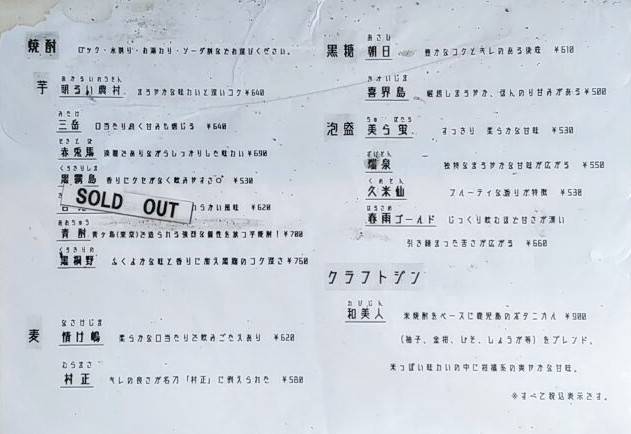 焼酎 ロック・水割り・お湯わり・ソーダ割などお選びください。
芋
あかるいのうそん
明るい農村 まろやかな味わいと深いコク ¥640
みたけ
三岳 口当たり良く甘みも感じる ¥640
せきとば
赤兎馬 淡麗でありながらしっかりした味わい ¥690
くろきりしま
黒霧島 香りにクセがなく飲みやすさ◎ ¥530
SOLD OUT
らかい風味 ¥620
あおちゅう
青酎 青ヶ島(東京)で造られる強烈な個性を放つ芋焼酎! ¥700
くろきりの
黒桐野 ふくよかな味と香りに加え黒麹のコク深さ ¥760
麦
なさけじま
情け嶋 柔らかな口当たりで飲みごたえあり ¥620
むらまさ
村正 キレの良さが名刀「村正」に例えられた ¥580
黒糖
あさひ
朝日 豊かなコクとキレのある後味 ¥610
きかいじま
喜界島 黒糖しまろやか、ほんのり甘みがある ¥500
泡盛
ちゅ ぼたる
美ら蛍 すっきり 柔らかな甘味 ¥530
ずいせん
瑞泉 独特なまろやかな甘味が広がる ¥550
くめせん
久米仙 フルーティな香りが特徴 ¥530
はるさめ
春雨ゴールド じっくり飲むほど甘さが深い
引き締まった苦さが広がる ¥660
クラフトジン
わびじん
和美人 米焼酎をベースに鹿児島のボタニカル ¥900
(柚子、金柑、しそ、しょうが等)をブレンド。
米っぽい味わいの中に柑橘系の爽やかな甘味。
※すべて税込表示です。